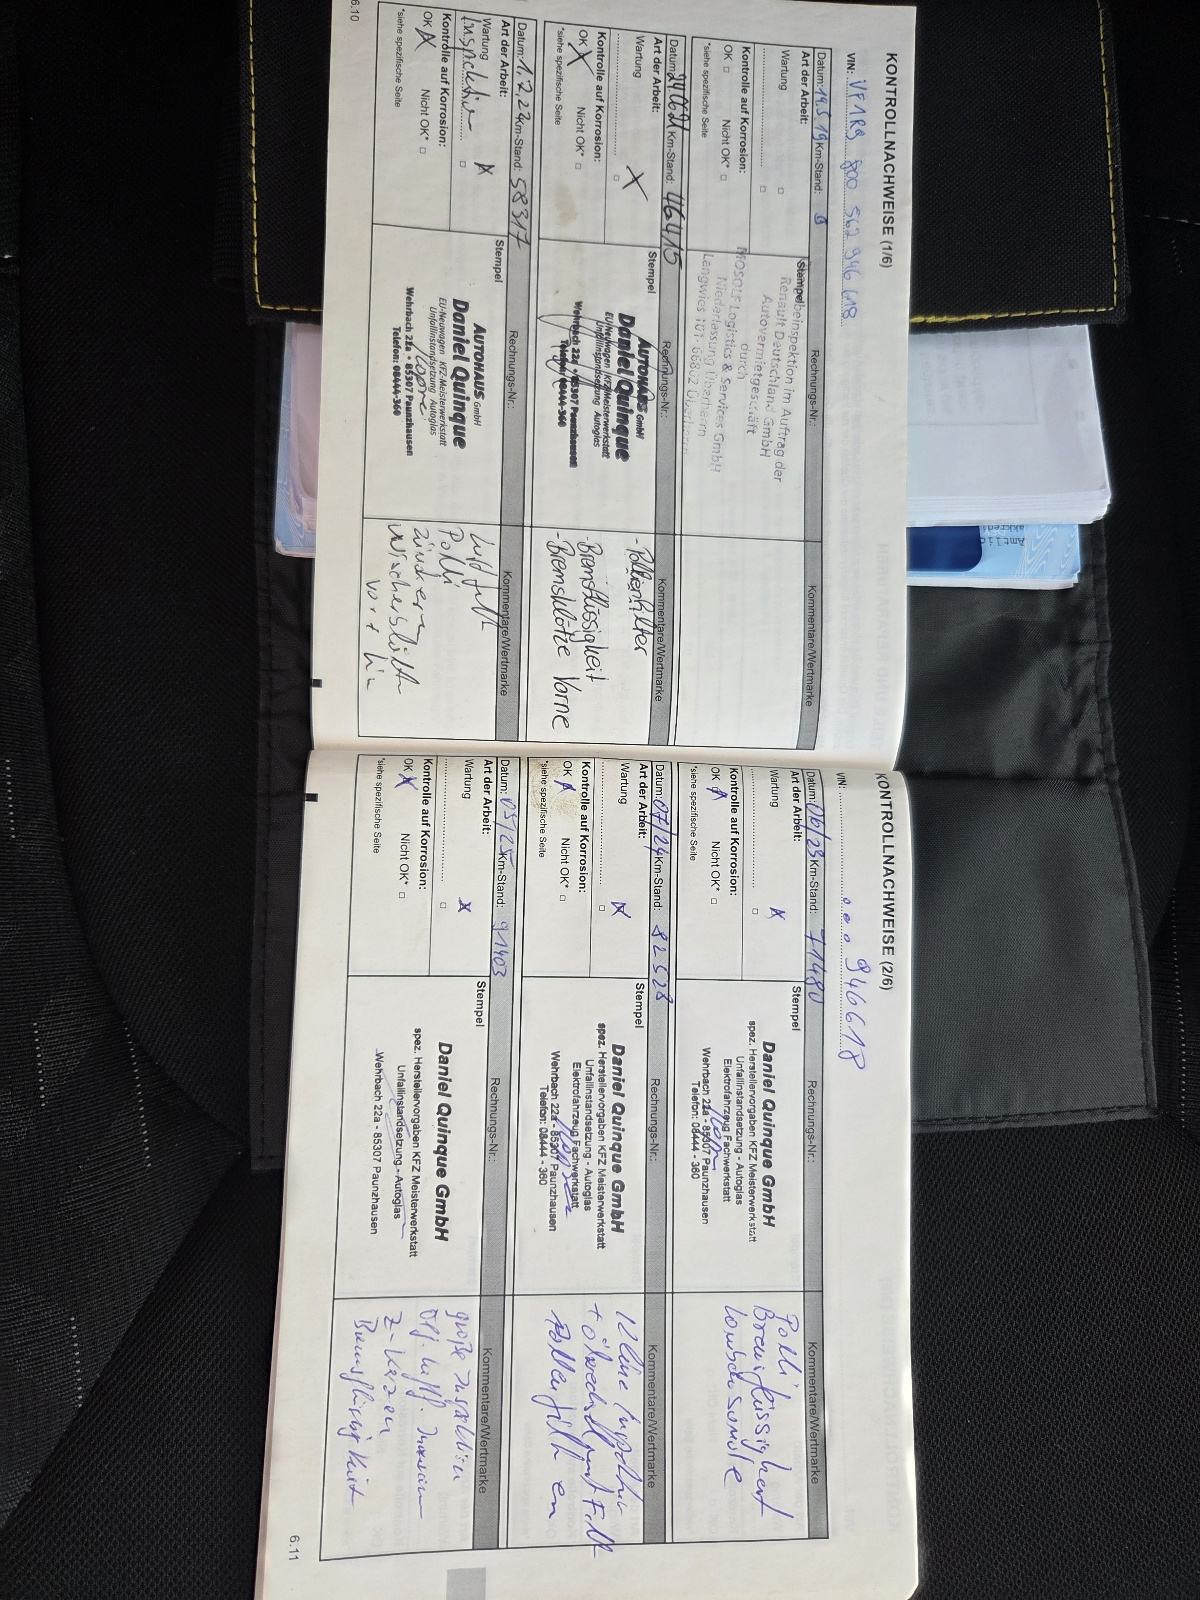 KONTROLLNACHWEISE (1/6)
VIN: VF1R9 800 562 946 618
Datum: 19.3.19 Km-Stand: 0 Rechnungs-Nr.: Kommentare/Wertmarke
Art der Arbeit: Stempel
Wartung
Kontrolle auf Korrosion:
OK Nicht OK*
*siehe spezifische Seite
beinspektion im Auftrag der
Renault Deutschland GmbH
Autovermietgeschäft
durch
MOSOLF Logistics & Services GmbH
Niederlassung Überherrn
Langwies 101, 66802 Überherrn
Km-Stand: 46415 Rechnungs-Nr.: Kommentare/Wertmarke
Art der Arbeit: Stempel
Wartung X
Kontrolle auf Korrosion:
OK X Nicht OK*
*siehe spezifische Seite
AUTOHAUS GmbH
Daniel Quinque
EU-Neuwagen KFZ-Meisterwerkstatt
Unfallinstandsetzung Autoglas
Wehrbach 22a • 85307 Paunzhausen
Telefon: 08444-360
- Pollenfilter
- Bremsflüssigkeit
- Bremsklötze Vorne
Datum: 1.7.22 Km-Stand: 58317 Rechnungs-Nr.: Kommentare/Wertmarke
Art der Arbeit: Stempel
Wartung X
Inspektion
Kontrolle auf Korrosion:
OK X Nicht OK*
*siehe spezifische Seite
AUTOHAUS GmbH
Daniel Quinque
EU-Neuwagen KFZ-Meisterwerkstatt
Unfallinstandsetzung Autoglas
Wehrbach 22a • 85307 Paunzhausen
Telefon: 08444-360
Polli
vo. + hi
6.10
KONTROLLNACHWEISE (2/6)
VIN: 946618
Datum: 06/23 Km-Stand: 71480 Rechnungs-Nr.: Kommentare/Wertmarke
Art der Arbeit: Stempel
Wartung X
Kontrolle auf Korrosion:
OK X Nicht OK*
*siehe spezifische Seite
Daniel Quinque GmbH
spez. Herstellervorgaben KFZ Meisterwerkstatt
Unfallinstandsetzung - Autoglas
Elektrofahrzeug Fachwerkstatt
Wehrbach 22a - 85307 Paunzhausen
Telefon: 08444 - 360
Polli
Bremsflüssigkeit
Datum: 07/24 Km-Stand: 82528 Rechnungs-Nr.: Kommentare/Wertmarke
Art der Arbeit: Stempel
Wartung X
Kontrolle auf Korrosion:
OK X Nicht OK*
*siehe spezifische Seite
Daniel Quinque GmbH
spez. Herstellervorgaben KFZ Meisterwerkstatt
Unfallinstandsetzung - Autoglas
Elektrofahrzeug Fachwerkstatt
Wehrbach 22a - 85307 Paunzhausen
Telefon: 08444 - 360
Kleine Inspektion
Datum: 05/25 Km-Stand: 91403 Rechnungs-Nr.: Kommentare/Wertmarke
Art der Arbeit: Stempel
Wartung X
Kontrolle auf Korrosion:
OK X Nicht OK*
*siehe spezifische Seite
Daniel Quinque GmbH
spez. Herstellervorgaben KFZ Meisterwerkstatt
Unfallinstandsetzung - Autoglas
Wehrbach 22a - 85307 Paunzhausen
große Inspektion
Z-Kerzen
Bremsflüssigkeit
6.11